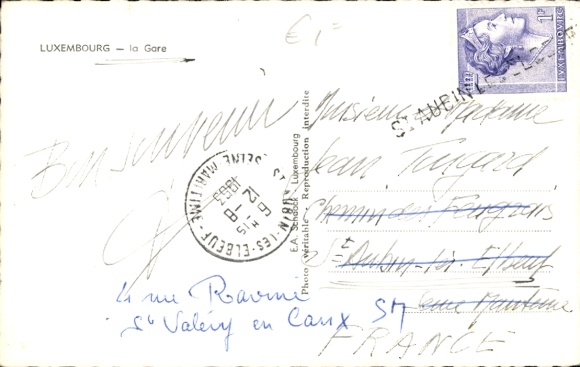 LUXEMBOURG — la Gare
€1=
1F
LUXEMBOURG
ST AUBIN LES ELBEUF
Bon souvenir
Monsieur Madame
Jean
Chemin des
St Aubin-les-Elbeuf
Seine Maritime
FRANCE
4 rue Ravine
St Valéry en Caux SM
ST AUBIN-LES-ELBEUF
SEINE MARITIME
6 H 15
12-8
1963
E.A. Schaack - Luxembourg
Photo véritable - Reproduction interdite